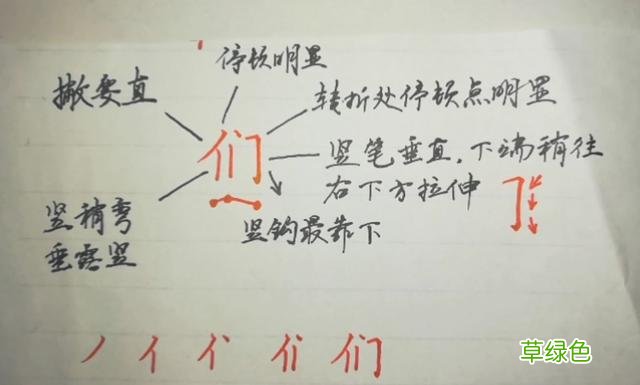 停顿明显
撇要直
转折处停顿点明显
们
竖笔垂直.下端稍往
右下方拉伸
竖稍弯
垂露竖
竖钩最靠下
们
草绿色